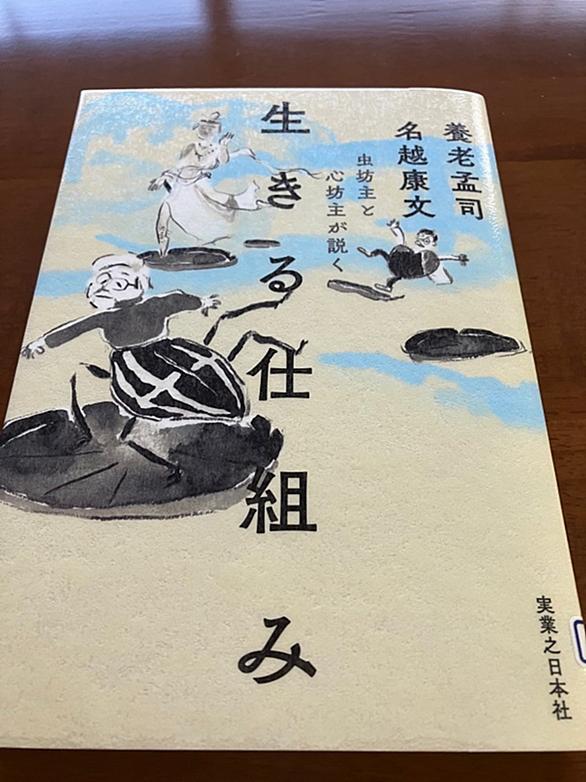 養老孟司
名越康文
虫坊主と
心坊主が説く
生きる仕組み
実業之日本社